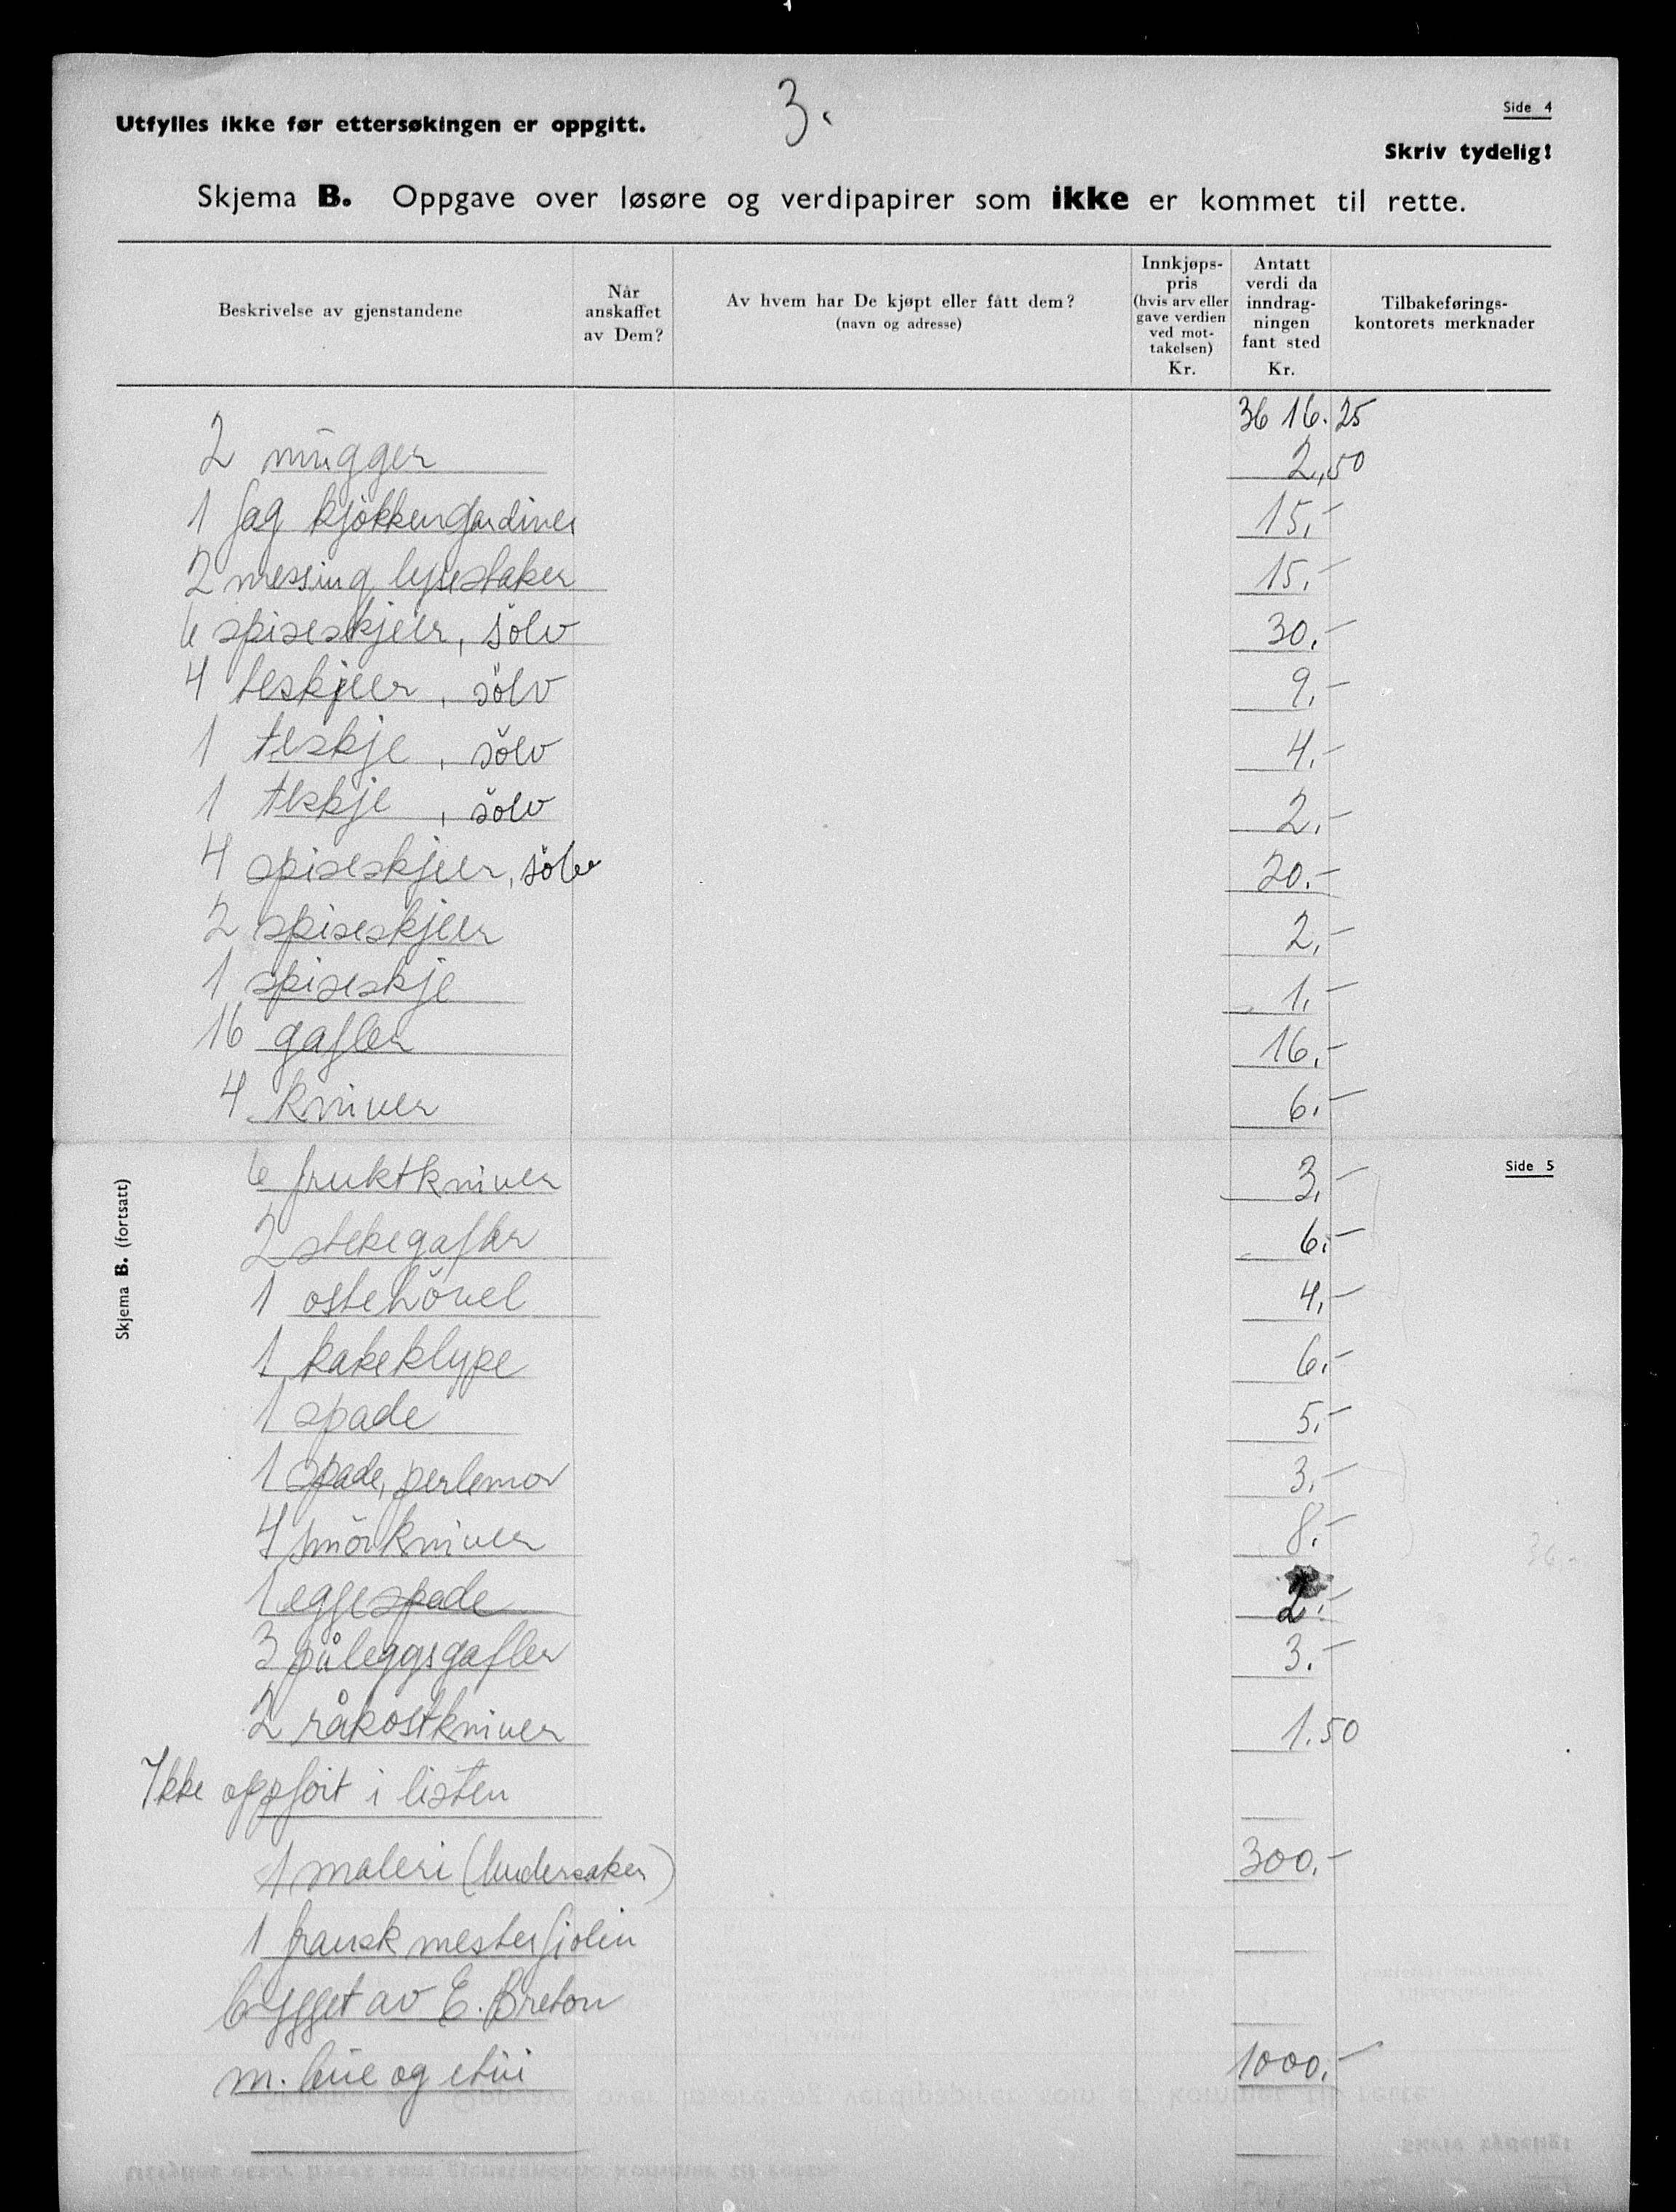 3.
Side 4
Utfylles ikke før ettersøkingen er oppgitt.
Skriv tydelig!
Skjema B. Oppgave over løsøre og verdipapirer som ikke er kommet til rette.
Beskrivelse av gjenstandene
Når anskaffet av Dem?
Av hvem har De kjøpt eller fått dem? (navn og adresse)
Innkjøps-pris (hvis arv eller gave verdien ved mot-takelsen) Kr.
Antatt verdi da inndrag-ningen fant sted Kr.
Tilbakeførings-kontorets merknader
3616.25
2 mugger 2,50
1 fag kjökkengardiner 15,-
2 messing lysestaker 15,-
6 spiseskjeer, sölv 30.-
4 teskjeer, sölv 9,-
1 teskje, sölv 4,-
1 teskje, sölv 2,-
4 spiseskjeer, sölv 20.-
2 spiseskjeer 2,-
1 spiseskje 1,-
16 gafler 16,-
4 kniver 6.-
Side 5
Skjema B. (fortsatt)
6 fruktkniver 3,-
2 stekegafler 6,-
1 ostehövel 4,-
1 kakeklype 6.-
1 spade 5,-
1 spade, perlemor 3,-
4 smörkniver 8.-
1 eggespade 2.-
3 påleggsgafler 3.-
2 råkostkniver 1.50
Ikke oppfört i listen
1 maleri 300,-
1 fransk mesterfiolin
bygget av E. Breton
m. bue og etui 1000,-